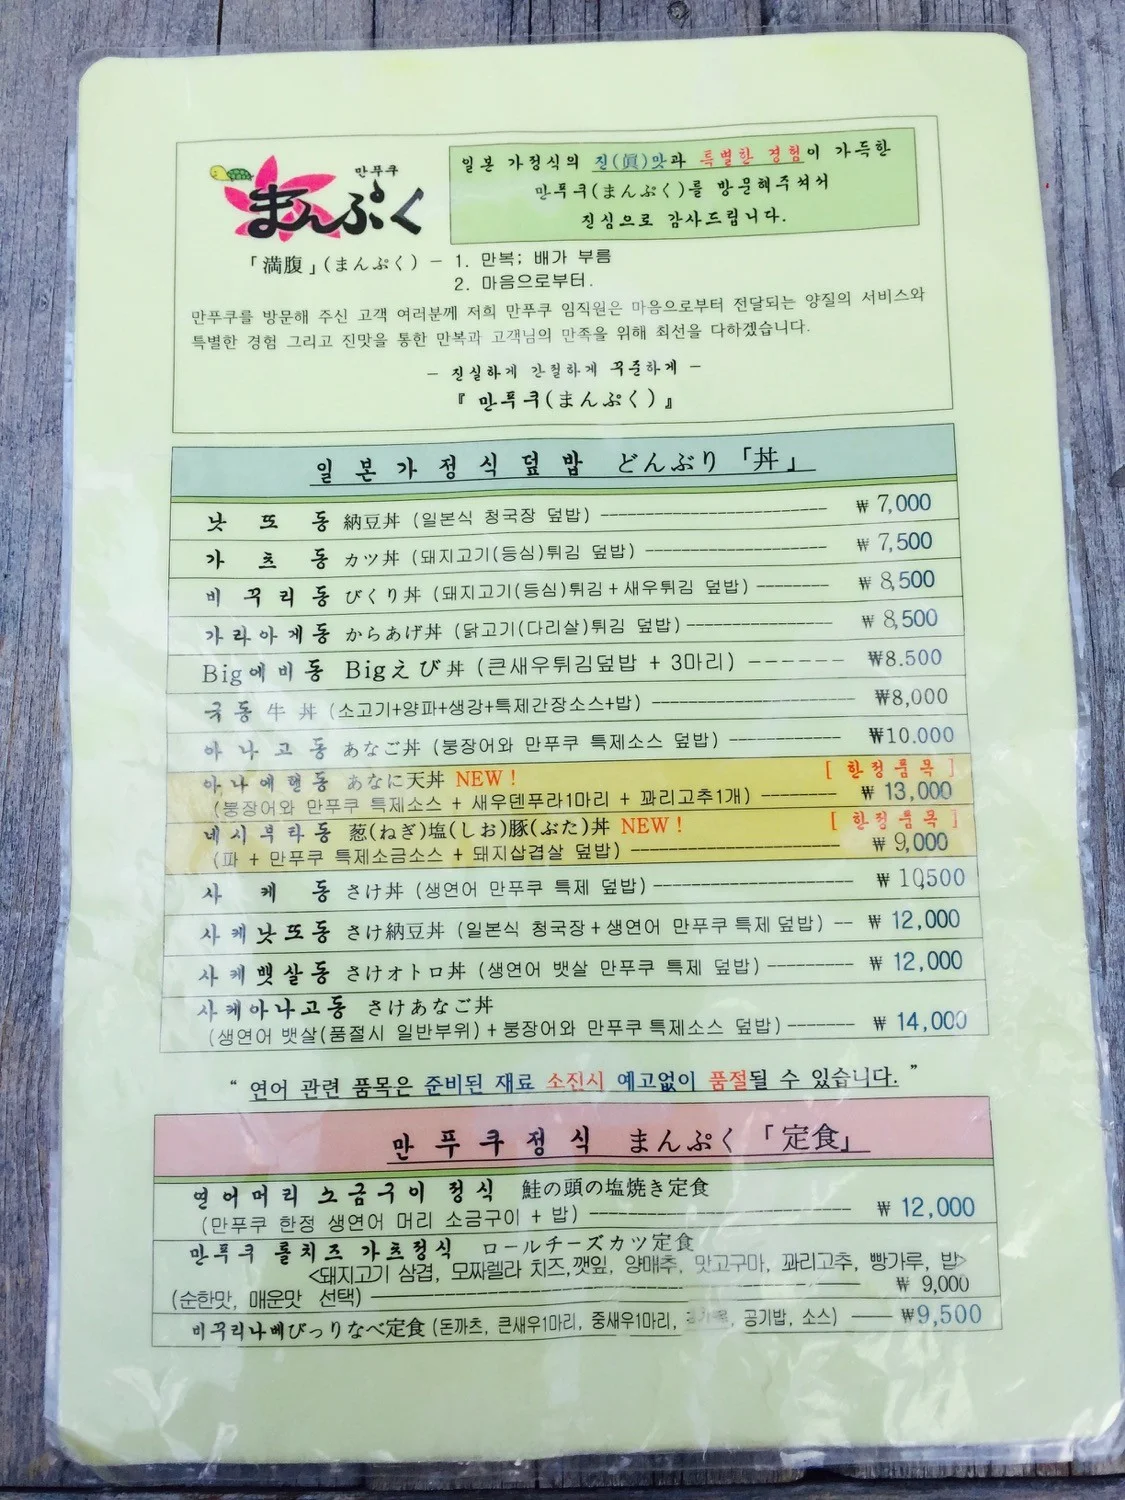 만푸쿠
まんぷく
일본 가정식의 진(眞)맛과 특별한 경험이 가득한
만푸쿠(まんぷく)를 방문해주셔서
진심으로 감사드립니다.
「満腹」(まんぷく) - 1. 만복; 배가 부름
2. 마음으로부터.
만푸쿠를 방문해 주신 고객 여러분께 저희 만푸쿠 임직원은 마음으로부터 전달되는 양질의 서비스와
특별한 경험 그리고 진맛을 통한 만복과 고객님의 만족을 위해 최선을 다하겠습니다.
- 진실하게 간절하게 꾸준하게 -
『만푸쿠(まんぷく)』
일본가정식덮밥 どんぶり「丼」
낫또동 納豆丼 (일본식 청국장 덮밥) ₩ 7,000
가츠동 カツ丼 (돼지고기(등심)튀김 덮밥) ₩ 7,500
비꾸리동 びくり丼 (돼지고기(등심)튀김+새우튀김 덮밥) ₩ 8,500
가라아게동 からあげ丼 (닭고기(다리살)튀김 덮밥) ₩ 8,500
Big에비동 Bigえび丼 (큰새우튀김덮밥 + 3마리) ₩8.500
규동 牛丼 (소고기+양파+생강+특제간장소스+밥) ₩8,000
아나고동 あなご丼 (붕장어와 만푸쿠 특제소스 덮밥) ₩10.000
아나에텐동 あなに天丼 NEW! [한정품목]
(붕장어와 만푸쿠 특제소스 + 새우덴푸라1마리 + 꽈리고추1개) ₩ 13,000
네시부타동 葱(ねぎ)塩(しお)豚(ぶた)丼 NEW! [한정품목]
(파 + 만푸쿠 특제소금소스 + 돼지삼겹살 덮밥) ₩ 9,000
사케동 さけ丼 (생연어 만푸쿠 특제 덮밥) ₩ 10,500
사케낫또동 さけ納豆丼 (일본식 청국장+생연어 만푸쿠 특제 덮밥) ₩ 12,000
사케뱃살동 さけオトロ丼 (생연어 뱃살 만푸쿠 특제 덮밥) ₩ 12,000
사케아나고동 さけあなご丼
(생연어 뱃살(품절시 일반부위)+붕장어와 만푸쿠 특제소스 덮밥) ₩ 14,000
“ 연어 관련 품목은 준비된 재료 소진시 예고없이 품절될 수 있습니다. ”
만푸쿠정식 まんぷく「定食」
연어머리 소금구이 정식 鮭の頭の塩焼き定食
(만푸쿠 한정 생연어 머리 소금구이 + 밥) ₩ 12,000
만푸쿠 롤치즈 가츠정식 ロールチーズカツ定食
<돼지고기 삼겹, 모짜렐라 치즈,깻잎, 양배추, 맛고구마, 꽈리고추, 빵가루, 밥>
(순한맛, 매운맛 선택) ₩ 9,000
비꾸리나베びっりなべ定食(돈까츠, 큰새우1마리, 중새우1마리, 공기밥, 소스) ₩9,500